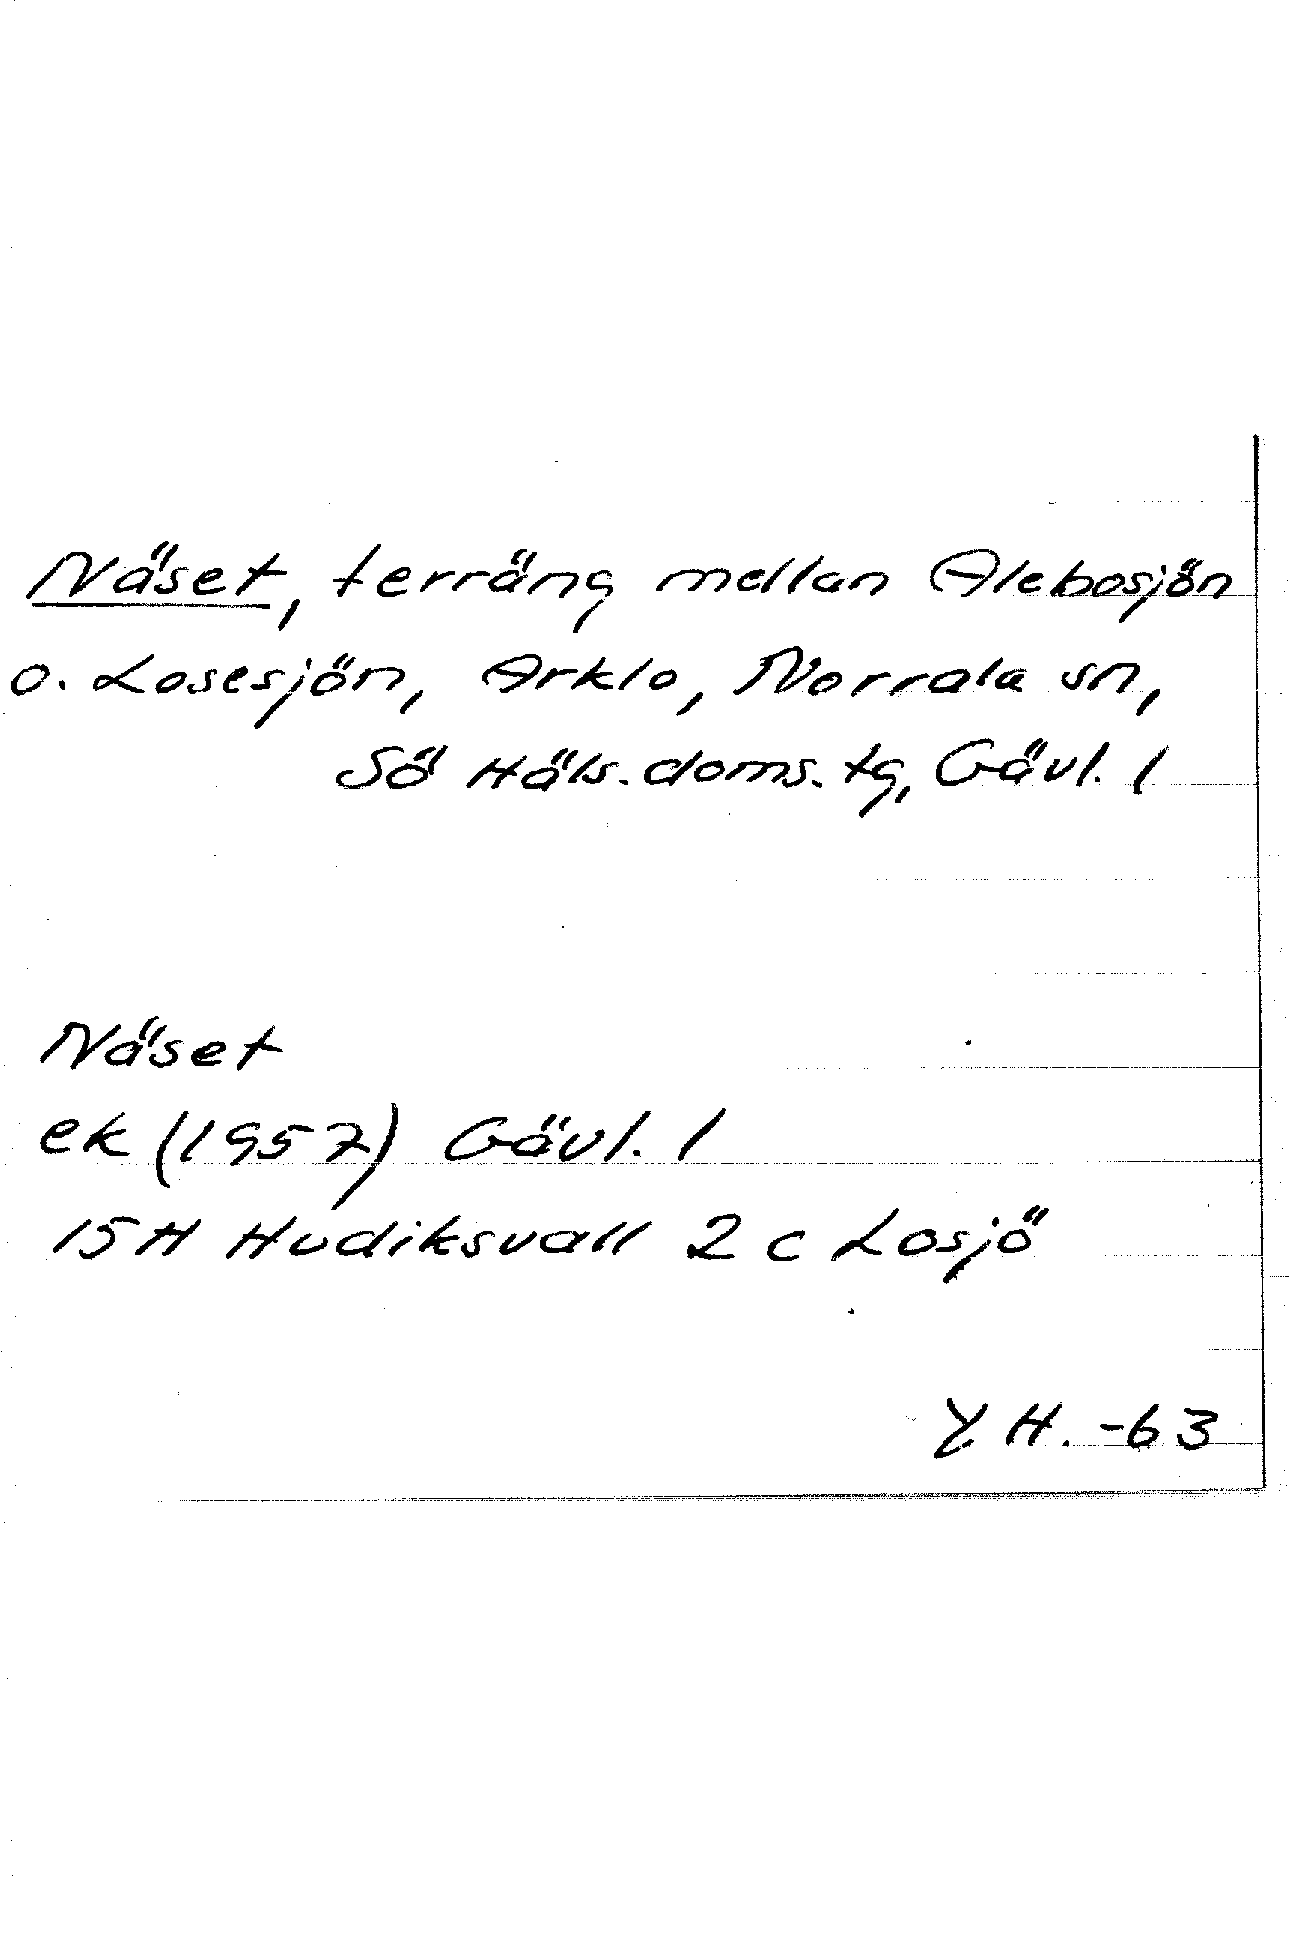 Näset, terräng mellan Alebosjön
o. Losesjön, Arklo, Norrala sn,
Sö Häls. doms. tg, Gävl. l
Näset
ek (1957) Gävl. l
15H Hudiksvall 2 c Losjö
Y H. -63